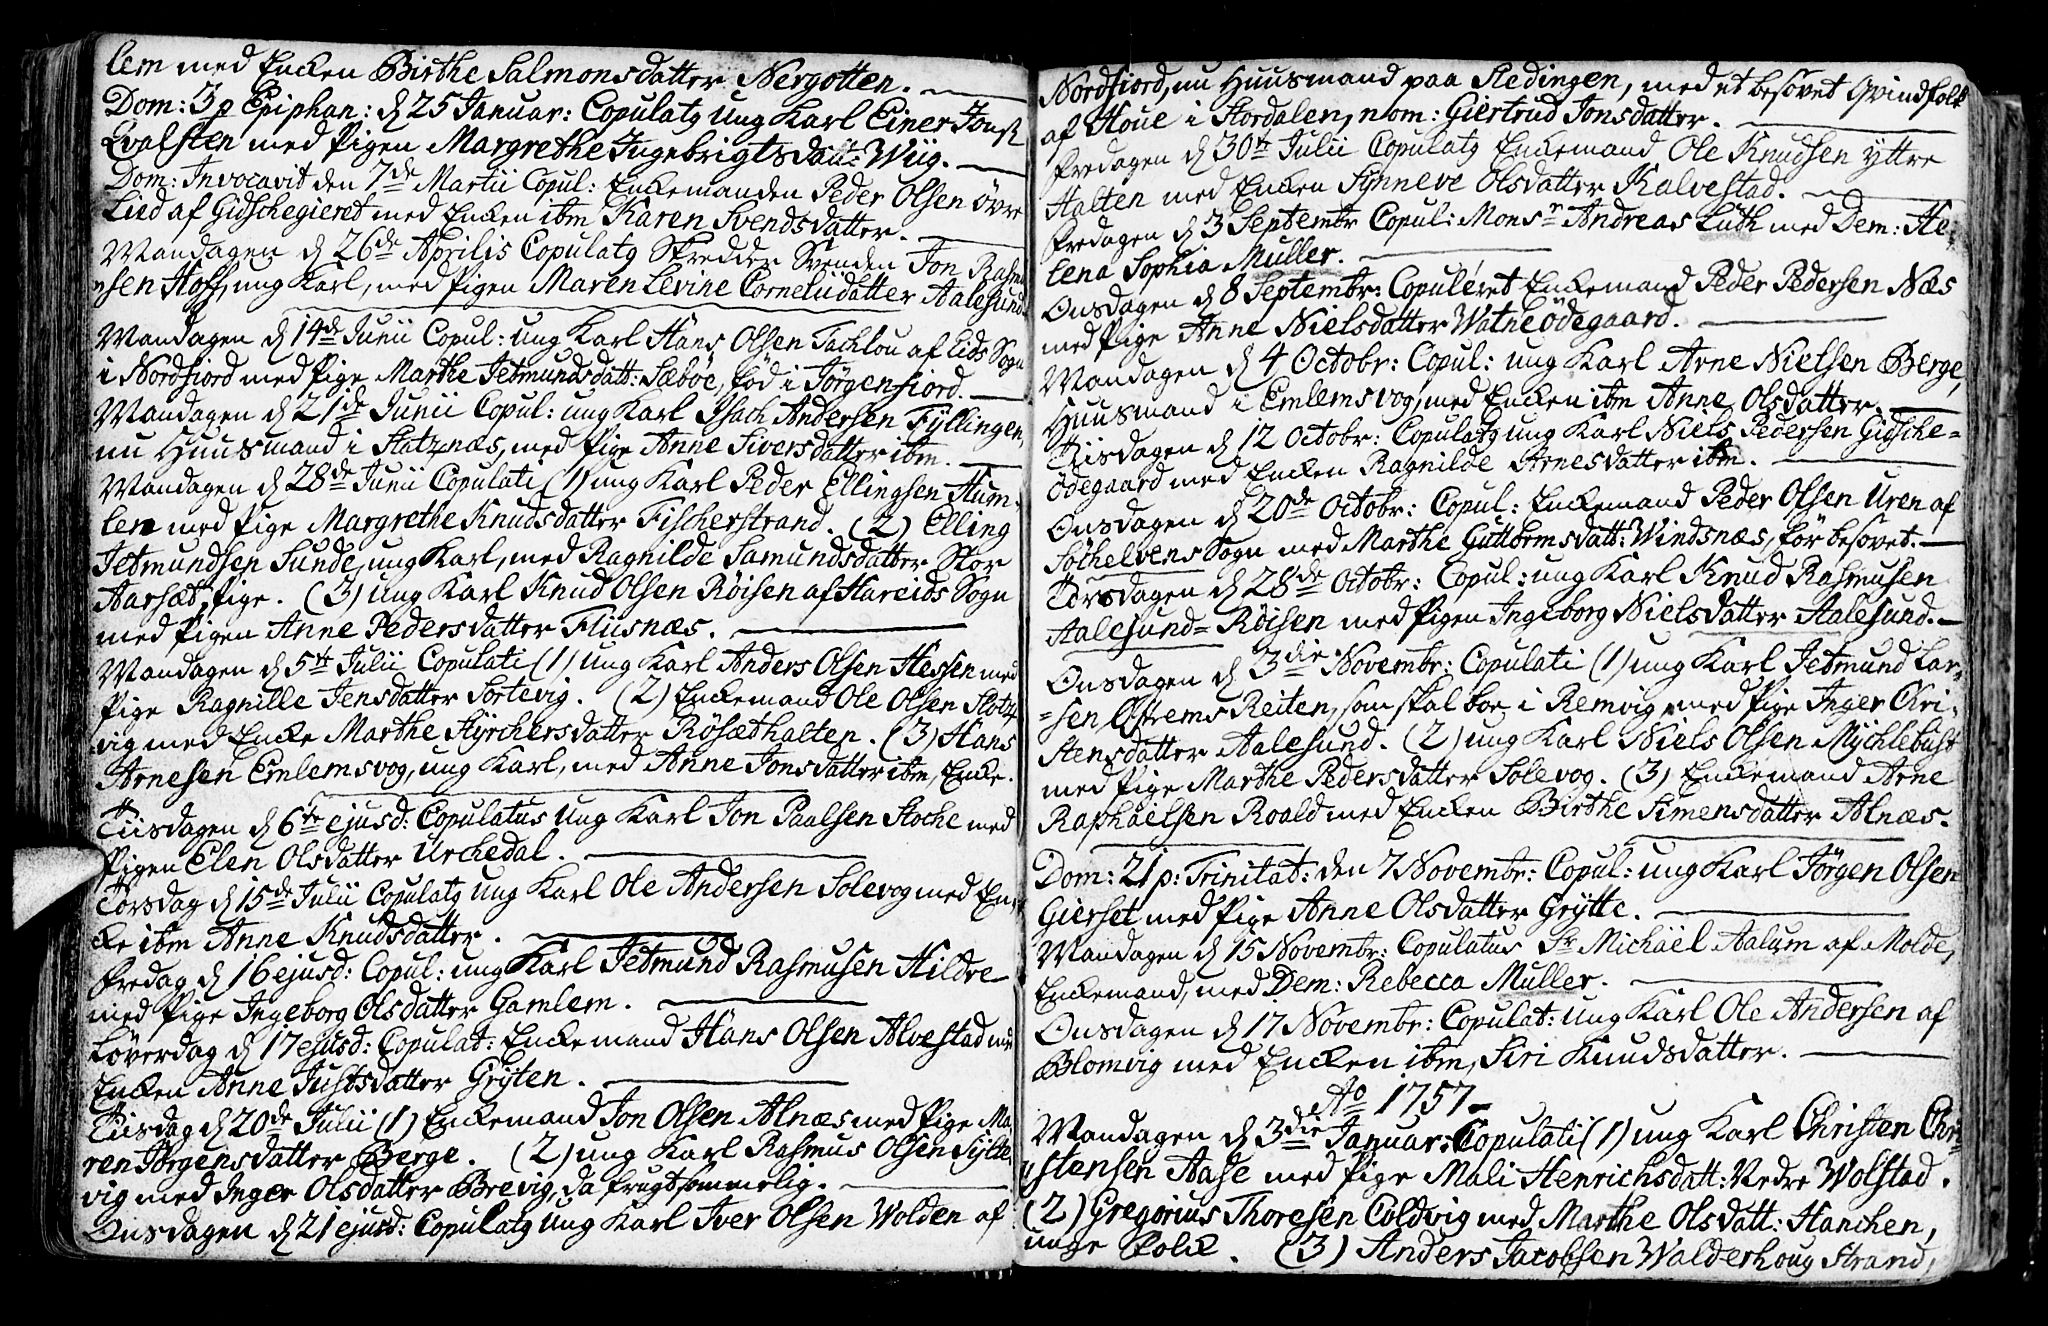 lem med Encken Birthe Salmonsdatter Nergotten.
Dom: 3 p Epiphan: d 25 Januar: Copulatg ung Karl Einer Jons
Qvalsten med Pigen Margrethe Ingebrigtsdatt: Wiig.
Dom: Invocavit den 7de Martii Copul: Enckemanden Peder Olsen øvre
Lied af Gidschegieret med Encken ibm Karen Svendsdatter.
Mandagen d 26de Aprilis Copulatg Skredder Svenden Jon Rasmu
sen Hoff, ung Karl, med Pigen Maren Levine Corneliidatter Aalesund.
Mandagen d 14de Junii Copul: ung Karl Hans Olsen Tachlou af Eids Sogn
i Nordfiord med Pige Marthe Jetmundsdatt: Sæbøe, fød i Jørgenfiord.
Mandagen d 21de Junii Copul: ung Karl Isach Andersen Fyllingen,
nu Huusmand i Slatznæs, med Pige Anne Siversdatter ibm.
Mandagen d 28de Junii Copulati (1) ung Karl Peder Ellingsen Hum-
len med Pige Margrethe Knudsdatter Fischerstrand. (2) Elling
Jetmundsen Sunde, ung Karl, med Ragnilde Samundsdatter Stor
Aarsæt, Pige. (3) ung Karl Knud Olsen Røisen af Hareids Sogn
med Pigen Anne Pedersdatter Fliisnæs.
Mandagen d 5te Julii Copulati (1) ung Karl Anders Olsen Hessen med
Pige Ragnille Jensdatter Sortevig. (2) Enckemand Ole Olsen Slotz
vig med Encke Marthe Hyrchersdatter Røsæthalten. (3) Hans
Arnesen Emlemsvog, ung Karl, med Anne Jonsdatter ibm, Encke.
Tiisdagen d 6te ejusd: Copulatus ung Karl Jon Paalsen Stoche med
Pigen Elen Olsdatter Urchedal.
Torsdag d 15de Julii Copulatg ung Karl Ole Andersen Solevog med En-
cke ibm Anne Knudsdatter.
Fredag d 16 ejusd: Copul: ung Karl Jetmund Rasmusen Hildre
med Pige Ingeborg Olsdatter Gamlem.
Løverdag d 17 ejusd: Copulat: Enckemand Hans Olsen Alvestad med
Encken Anne Justsdatter Gryten.
Tiisdag d 20de Julii (1) Enckemand Jon Olsen Alnæs med Pige Ma,
ren Jørgensdatter Berge. (2) ung Karl Rasmus Olsen Sylte
vig med Inger Olsdatter Brevig, da frugtsommelig.
Onsdagen d 21 ejusd: Copulatg ung Karl Iver Olsen Volden af
Nordfiord, nu Huusmand paa Sledingen, med et besovet Qvindfolk
af Houe i Stordalen, nom: Giertrud Jonsdatter.
Fredagen d 30te Julii Copulatg Enckemand Ole Knudsen yttre
Halten med Encken Synneve Olsdatter Kalvestad.
Fredagen d 3 Septembr Copul: Monsr Andreas Luth med Dem: He-
lena Sophia Muller.
Onsdagen d 8 Septembr: Copuléret Enckemand Peder Pedersen Næs
med Pige Anne Nielsdatter Watneødegaard.
Mandagen d 4 Octobr: Copul: ung Karl Arne Nielsen Berge,
Huusmand i Emlemsvog, med Encken ibm Anne Olsdatter.
Tiisdagen d 12 Octobr: Copulatg ung Karl Niels Pedersen Gidsche=
ødegaard med Encken Ragnilde Arnesdatter ibm.
Onsdagen d 20de Octobr: Copul: Enckemand Peder Olsen Uren af
Søchelvens Sogn med Marthe Guttormsdatt: Windsnæs, før besovet.
Torsdagen d 28de Octobr: Copul: ung Karl Knud Rasmusen
Aalesund=Røisen med Pigen Ingeborg Nielsdatter Aalesund.
Onsdagen d 3die Novembr: Copulati (1) ung Karl Jetmund Lar-
=sen Østrems Reiten, som skal boe i Remvig, med Pige Inger Chri-
stensdatter Aalesund. (2) ung Karl Niels Olsen Mychlebust
med Pige Marthe Pedersdatter Solevog. (3) Enckemand Arne
Raphaelsen Roald med Encken Birthe Simensdatter Alnæs.
Dom: 21 p: Trinitat: den 7 Novembr: Copul: ung Karl Jörgen Olsen
Gierset med Pige Anne Olsdatter Grytte.
Mandagen d 15 Novembr: Copulatus Sr Michäel Aalum af Molde,
Enckemand, med Dem: Rebecca Muller.
Onsdagen d 17 Novembr: Copulat: ung Karl Ole Andersen af
Blomvig med Encken ibm, Siri Knudsdatter.
Ao 1757
Mandagen d 3die Januar: Copulati (1) ung Karl Christen Chri-
stensen Aase med Pige Mali Henrichsdatt: Nedre Wolstad.
(2) Gregorius Thoresen Coldvig med Marthe Olsdatt: Hanchen,
unge Folck. (3) Anders Jacobsen Walderhoug Strand,